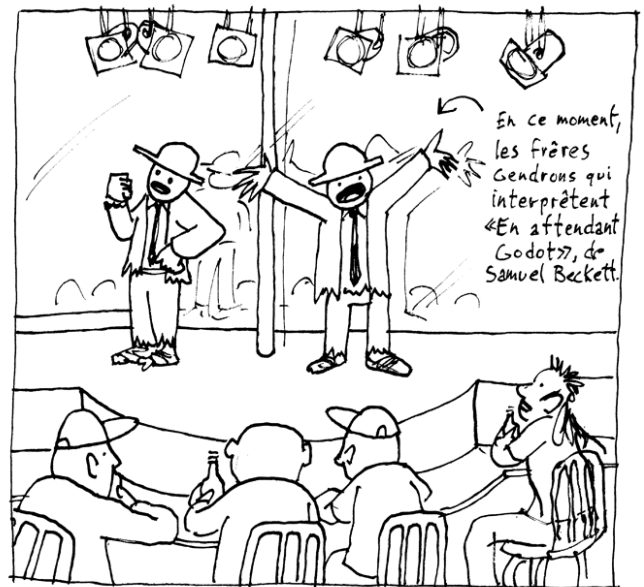 En ce moment,
les frêres
Gendrons qui
interprêtent
«En attendant
Godot», de
Samuel Beckett.